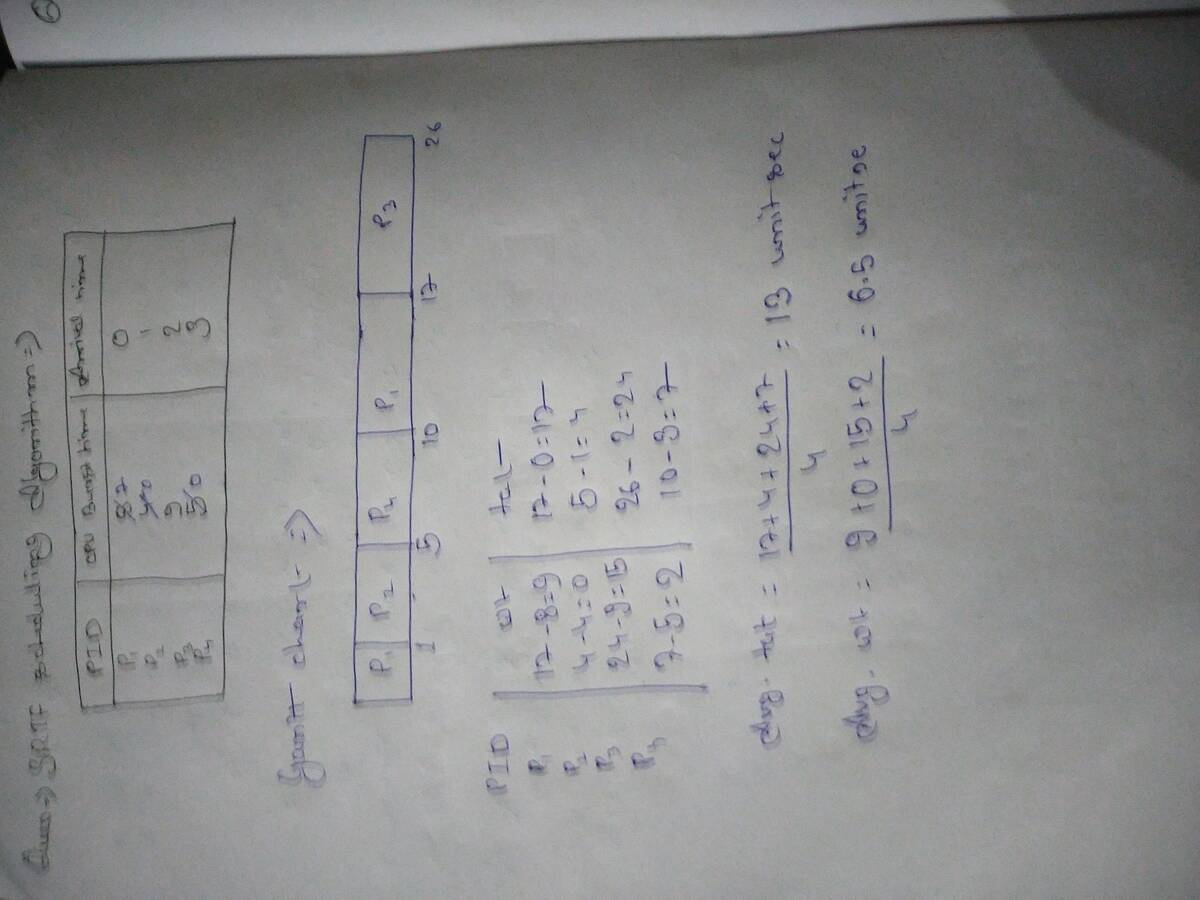 Ques => SRTF scheduling Algorithm =>
PID CPU Burst time Arrival time
P1 8 7 0
P2 4 0 1
P3 9 2
P4 5 0 3
Gantt chart =>
P1 P2 P4 P1 P3
1 5 10 17 26
PID wt tat
P1 17-8=9 17-0=17
P2 4-4=0 5-1=4
P3 24-9=15 26-2=24
7-5=2 10-3=7
Avg. tat = 17+4+24+7 / 4 = 13 unit sec
Avg. wt = 9+0+15+2 / 4 = 6.5 unit se